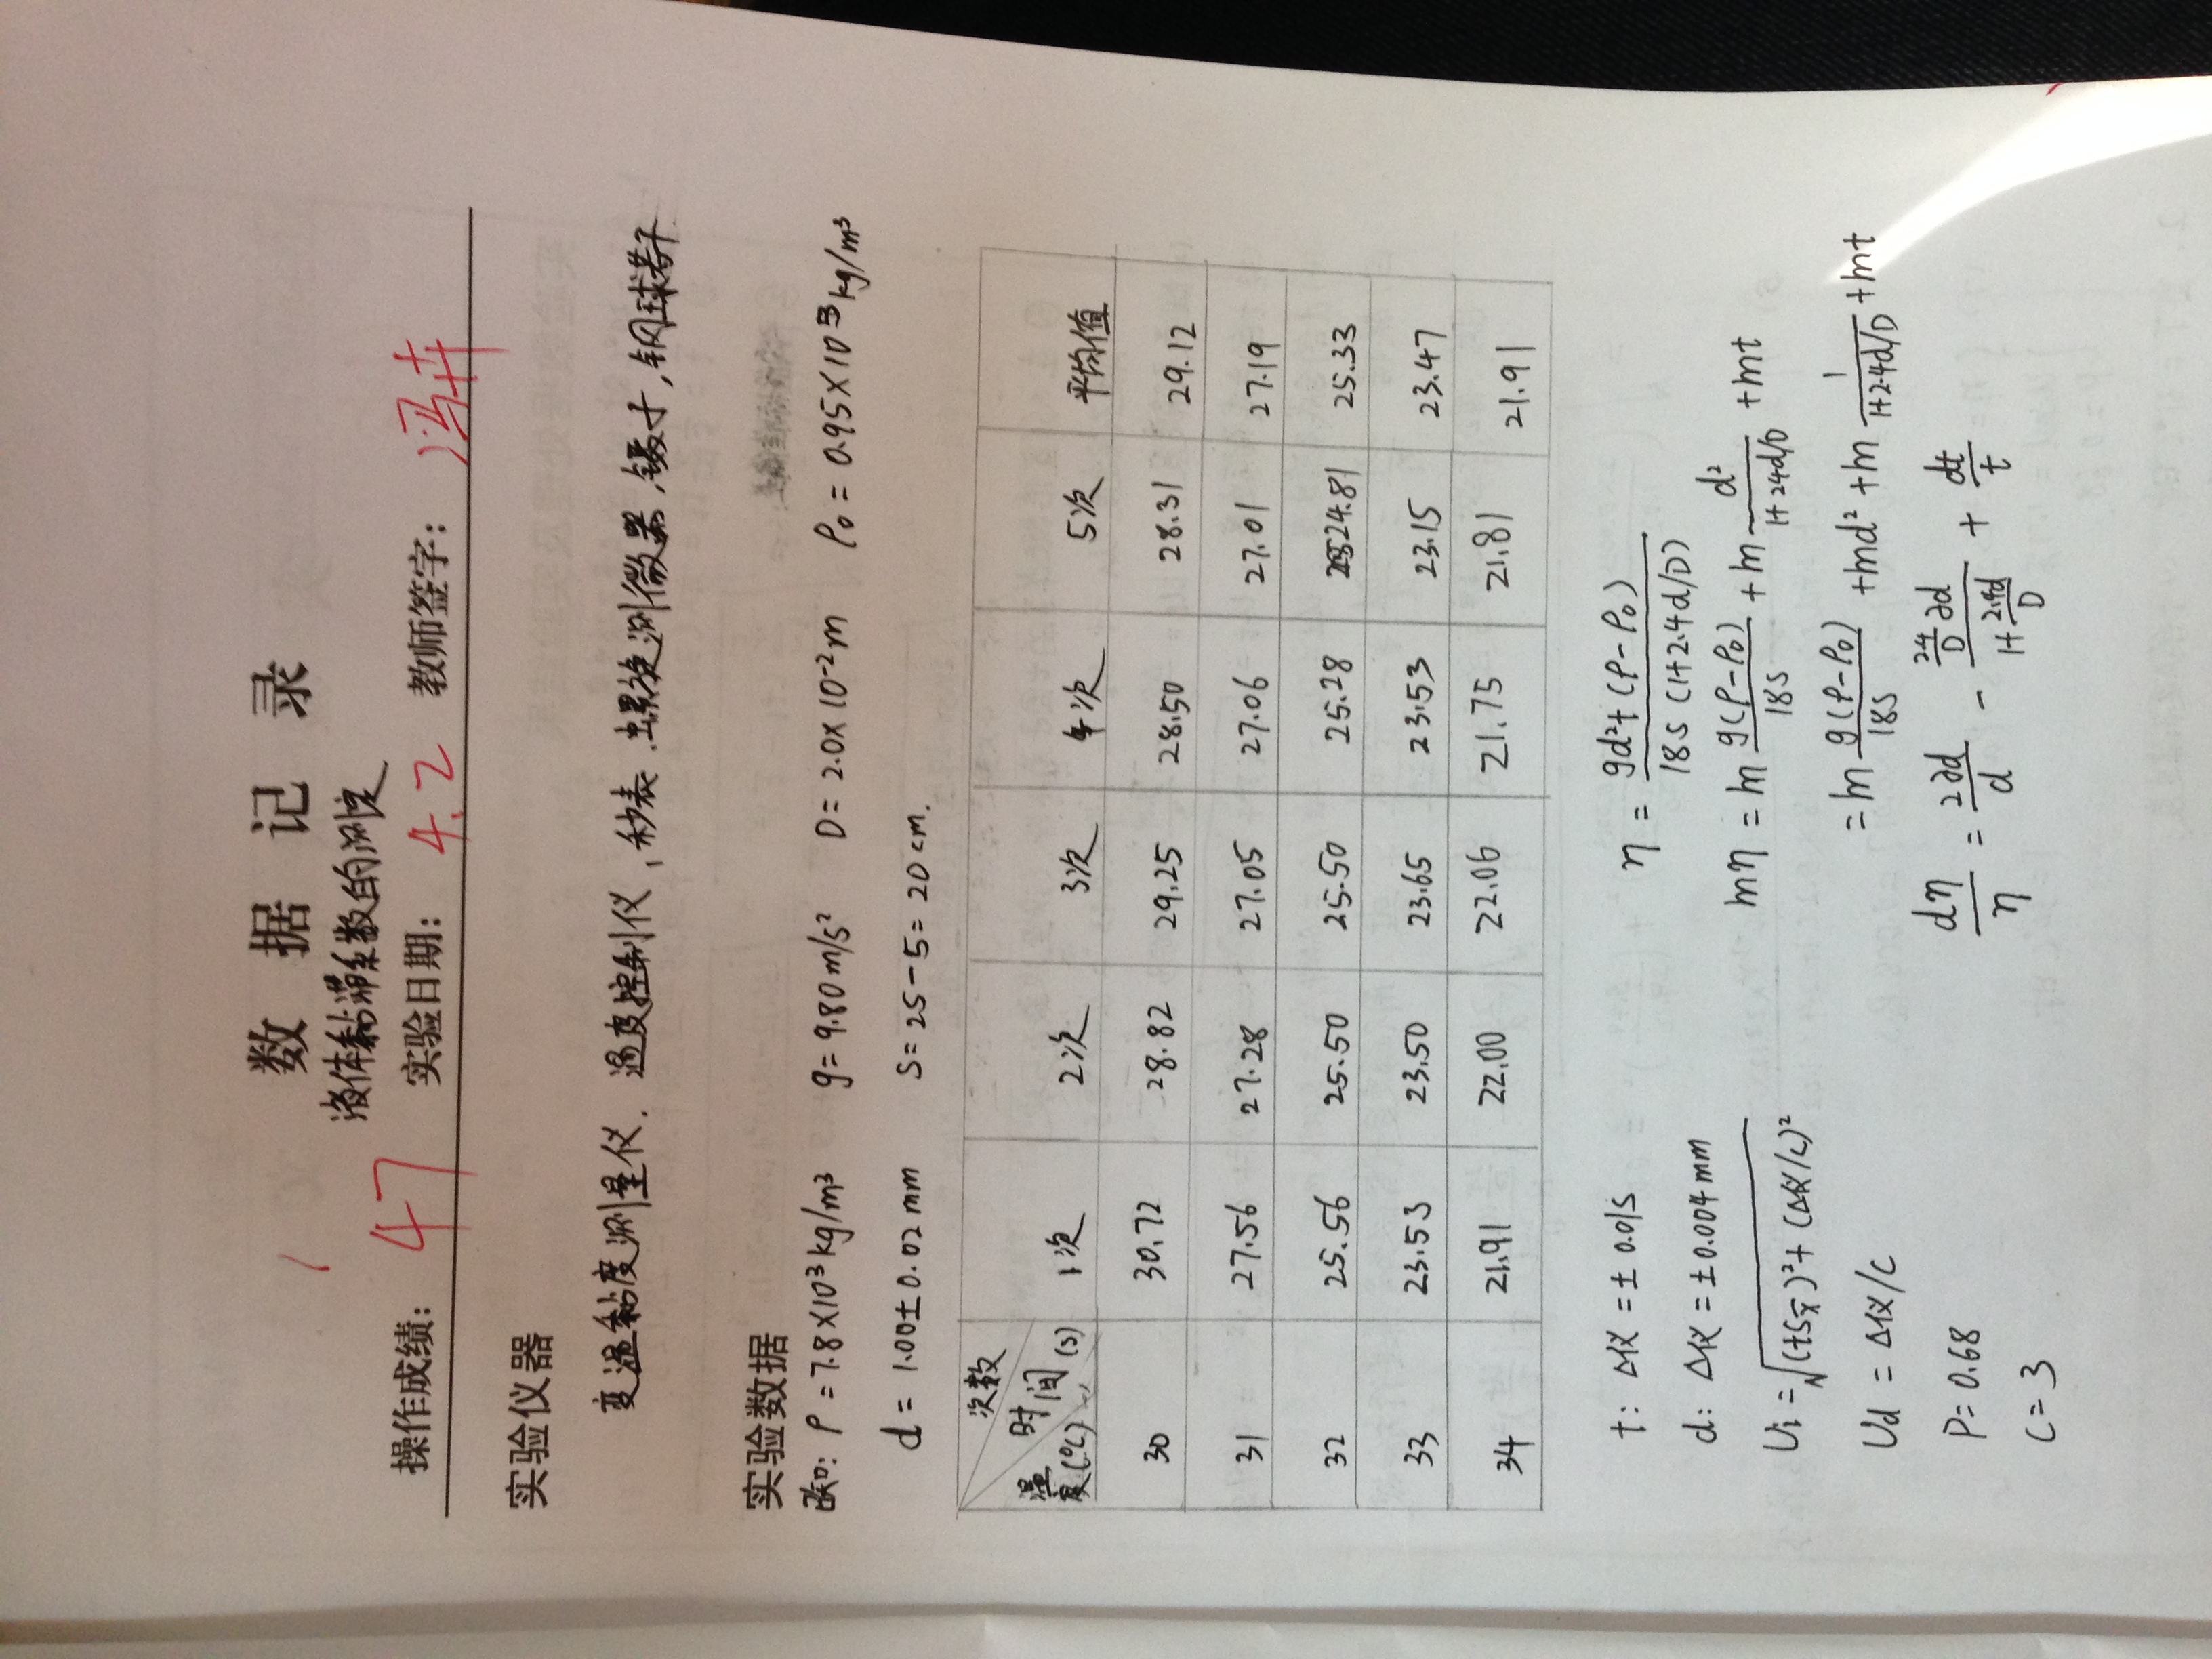 数据记录
液体黏滞系数的测定
操作成绩： 47 实验日期： 4.2 教师签字：
实验仪器
变温黏度测量仪．温度控制仪，秒表．螺旋测微器，镊子，钢球若干
实验数据
已知： ρ = 7.8×10³kg/m³ g= 9.80m/s² D= 2.0×10⁻²m ρ₀ = 0.95×10³kg/m³
d = 1.00±0.02mm S=25-5=20cm.
次数 时间(s) 温度(℃) 1次 2次 3次 4次 5次 平均值
30 30.72 28.82 29.25 28.50 28.31 29.12
31 27.56 27.28 27.05 27.06 27.01 27.19
32 25.56 25.50 25.50 25.28 24.81 25.33
33 23.53 23.50 23.65 23.53 23.15 23.47
34 21.91 22.00 22.06 21.75 21.81 21.91
t: Δ仪=±0.01s η = gd²t(ρ-ρ₀) / 18S(1+2.4d/D)
d: Δ仪=±0.004mm
Ui = √(tSx̄)²+(Δ仪/c)² lnη = ln g(ρ-ρ₀)/18S + ln d²/1+2.4d/D + lnt
Ud = Δ仪/c = ln g(ρ-ρ₀)/18S + lnd² + ln 1/1+2.4d/D + lnt
P=0.68 dη/η = 2∂d/d - 2.4/D ∂d/1+2.4d/D + dt/t
C=3